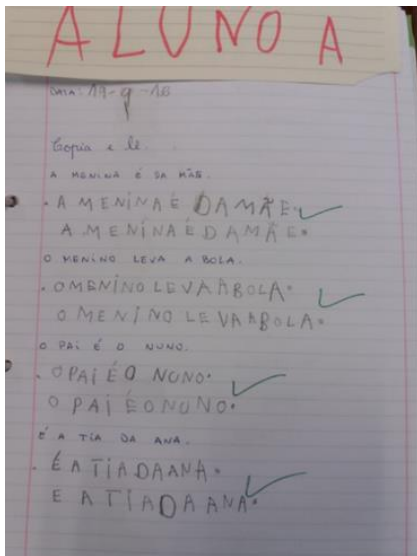 ALUNO A
DATA: 19-9-18
Copia e lê.
A MENINA É DA MÃE.
. A MENINA É DA MÃE.
A MENINA É DA MÃE.
O MENINO LEVA A BOLA.
. O MENINO LEVA A BOLA.
O MENINO LEVA A BOLA.
O PAI É O NUNO.
. O PAI É O NUNO.
O PAI É O NUNO.
É A TIA DA ANA.
. É A TIA DA ANA.
E A TIA DA ANA.